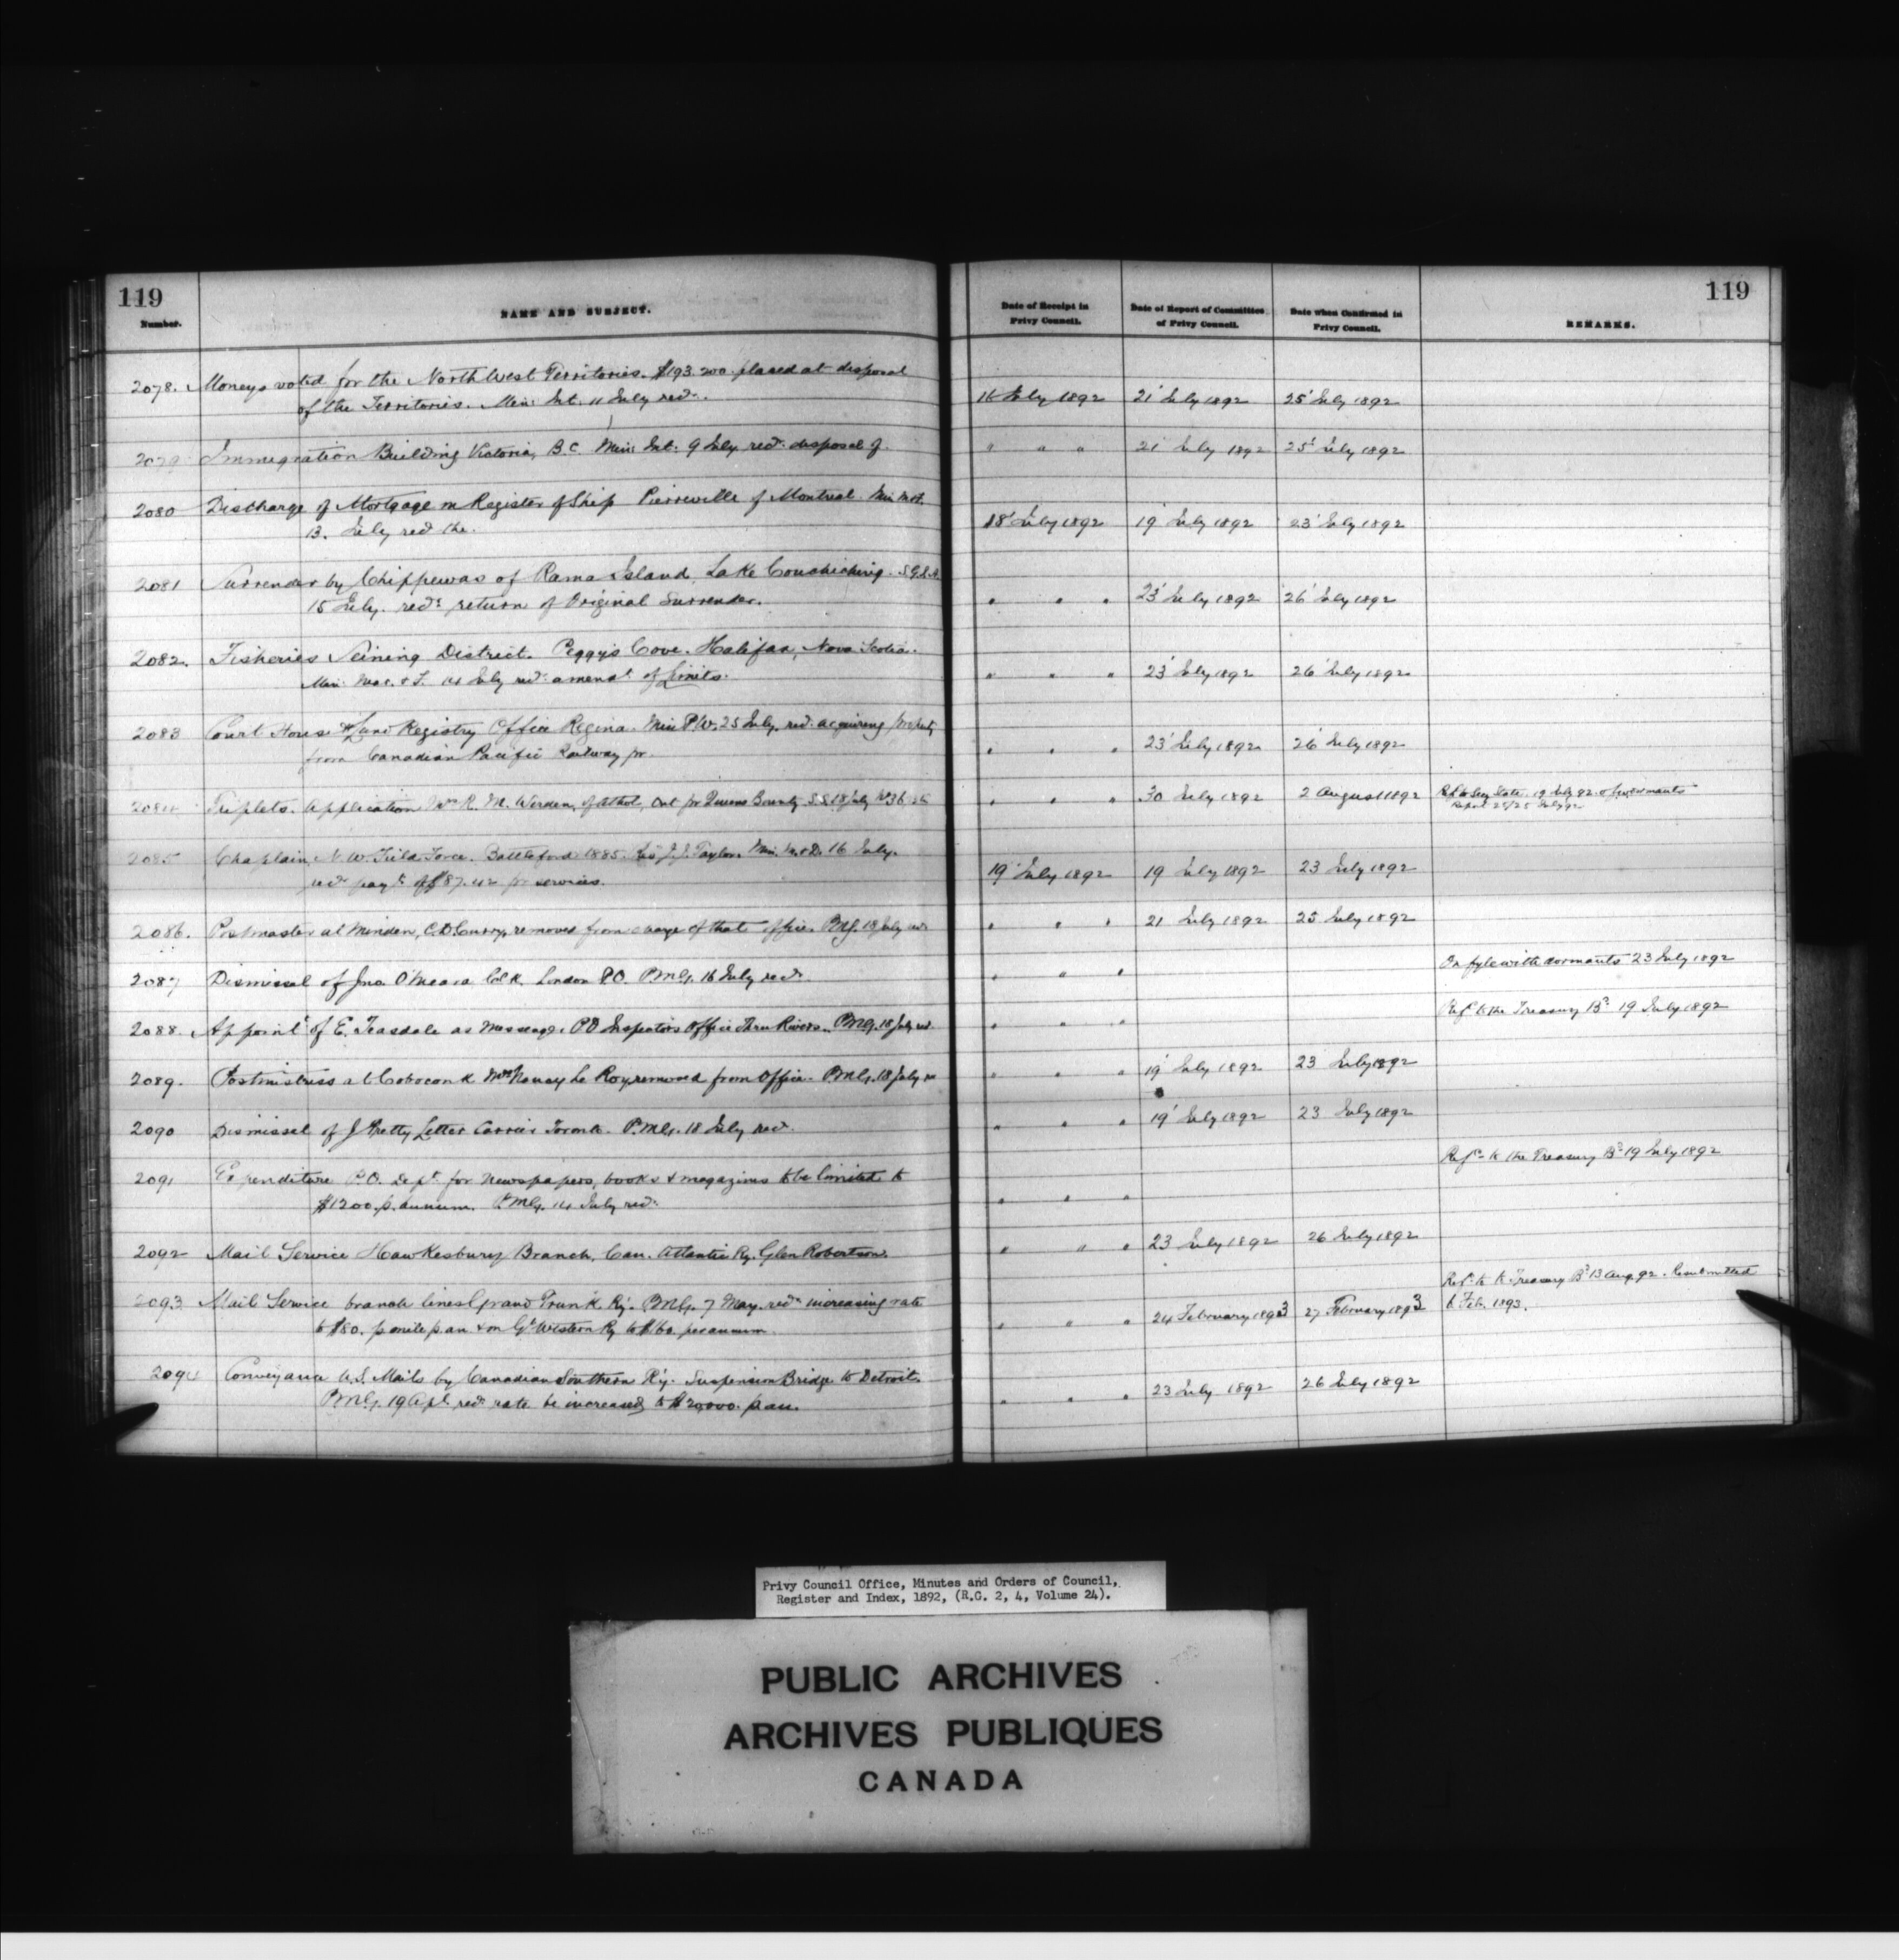 119
Number.
NAME AND SUBJECT.
Date of Receipt in
Privy Council.
Date of Report of Committee
of Privy Council.
Date when Confirmed in
Privy Council.
REMARKS.
119
2078. Moneys voted for the North West Territories. $193.200 placed at disposal
of the Territories. Min: Int. 11 July recd. 16 July 1892 21 July 1892 25 July 1892
2079 Immigration Building Victoria, B.C. Min: Int. 9 July recd. disposal of. " " " 21 July 1892 25 July 1892
2080 Discharge of Mortgage on Register of Ship Pierreville of Montreal Min M&F.
13. July recd the. 18 July 1892 19 July 1892 23 July 1892
2081 Surrender by Chippewas of Rama Island, Lake Couchiching. S.G.I.A.
15 July. recd. return of Original Surrender. " " " 23 July 1892 26 July 1892
2082. Fisheries Seining District. Peggy's Cove. Halifax, Nova Scotia.
Min: Mar. & F. 14 July recd. amendt. of Limits. " " " 23 July 1892 26 July 1892
2083 Court House & Land Registry Office Regina. Min P.W. 25 July. recd. acquiring property
from Canadian Pacific Railway for. " " " 23 July 1892 26 July 1892
2084 Triplets. Application Mrs R. M. Werden, of Athol, Ont for Queens Bounty S.S. 18 July No 36 " " " 30 July 1892 2 August 1892 Ref to Sec State. 19 July 92
Report 25 July 92
2085 Chaplain, N.W. Field Force. Battleford 1885. Rev J. J. Taylor. Min. M.&D. 16 July.
recd payt. of $87.42 for services. 19 July 1892 19 July 1892 23 July 1892
2086. Postmaster at Minden, C.D. Curry, removed from charge of that office. PMG. 18 July recd " " " 21 July 1892 25 July 1892
2087 Dismissal of Jno. O'Meara Clk. London P.O. P.M.G. 16 July recd. " " " On fyle with dormants 23 July 1892
2088. Appoint. of E. Teasdale as Messenger. P.O. Inspectors Office Three Rivers. PMG. 18 July recd. " " " Refd to the Treasury Bd 19 July 1892
2089. Postmistress at Coboconk Mrs Nancy Le Roy, removed from Office. P.M.G. 18 July " " " 19 July 1892 23 July 1892
2090 Dismissal of J Pretty Letter Carrier Toronto. P.M.G. 18 July recd. " " " 19 July 1892 23 July 1892
2091 Expenditure P.O. Dept. for Newspapers, books & magazines to be limited to
$1200. p. annum. P.M.G. 14 July recd. " " " Refd. to the Treasury Bd 19 July 1892
2092 Mail Service Hawkesbury Branch, Can. Atlantic Ry. Glen Robertson. " " " 23 July 1892 26 July 1892
2093 Mail Service branch lines Grand Trunk Ry. P.M.G. 7 May. recd. increasing rate
to $80. p mile p an & on Gt Western Ry to $160. per annum. " " " 24 February 1893 27 February 1893 Refd. to Treasury Bd 13 Aug 92. Resubmitted
6 Feb. 1893.
2094 Conveyance U.S. Mails by Canadian Southern Ry. Suspension Bridge to Detroit.
P.M.G. 19 Apl. recd. rate be increased to $20,000. p an. " " " 23 July 1892 26 July 1892
Privy Council Office, Minutes and Orders of Council,
Register and Index, 1892, (R.G. 2, 4, Volume 24).
PUBLIC ARCHIVES
ARCHIVES PUBLIQUES
CANADA